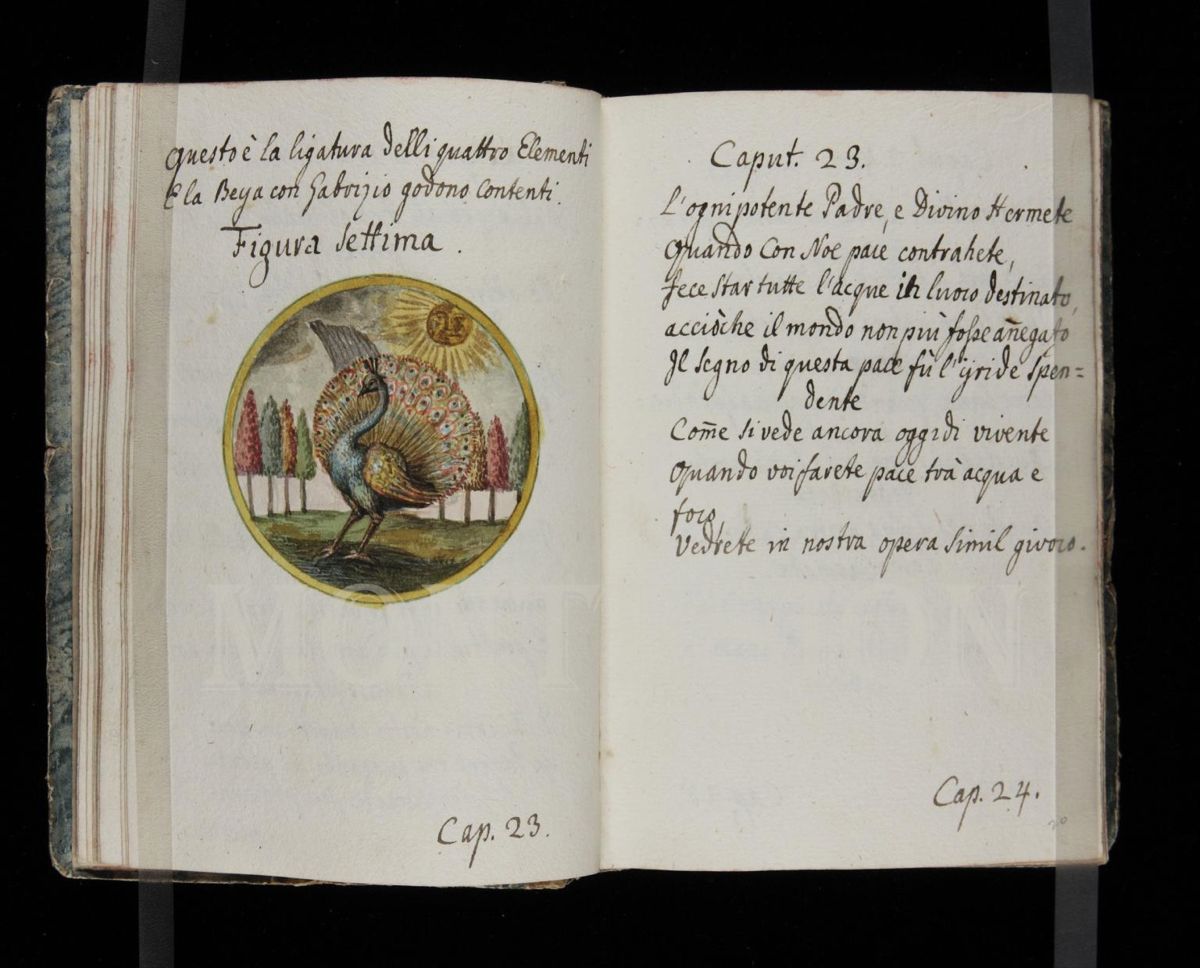 Questo è la ligatura delli quattro Elementi
E la Beya con Gabrizio godono Contenti.
Figura settima.
Cap. 23.
Caput. 23.
L'ognipotente Padre, e Divino Hermete
Quando Con Noe pace contrahete,
fece star tutte l'acque in luoco destinato,
acciòche il mondo non più fosse añegato
Il segno di questa pace fù l'ijride spen=
dente
Com̃e si vede ancora oggidi vivente
Quando voi farete pace trà acqua e
foco,
Vedrete in nostra opera simil givoco.
Cap. 24.